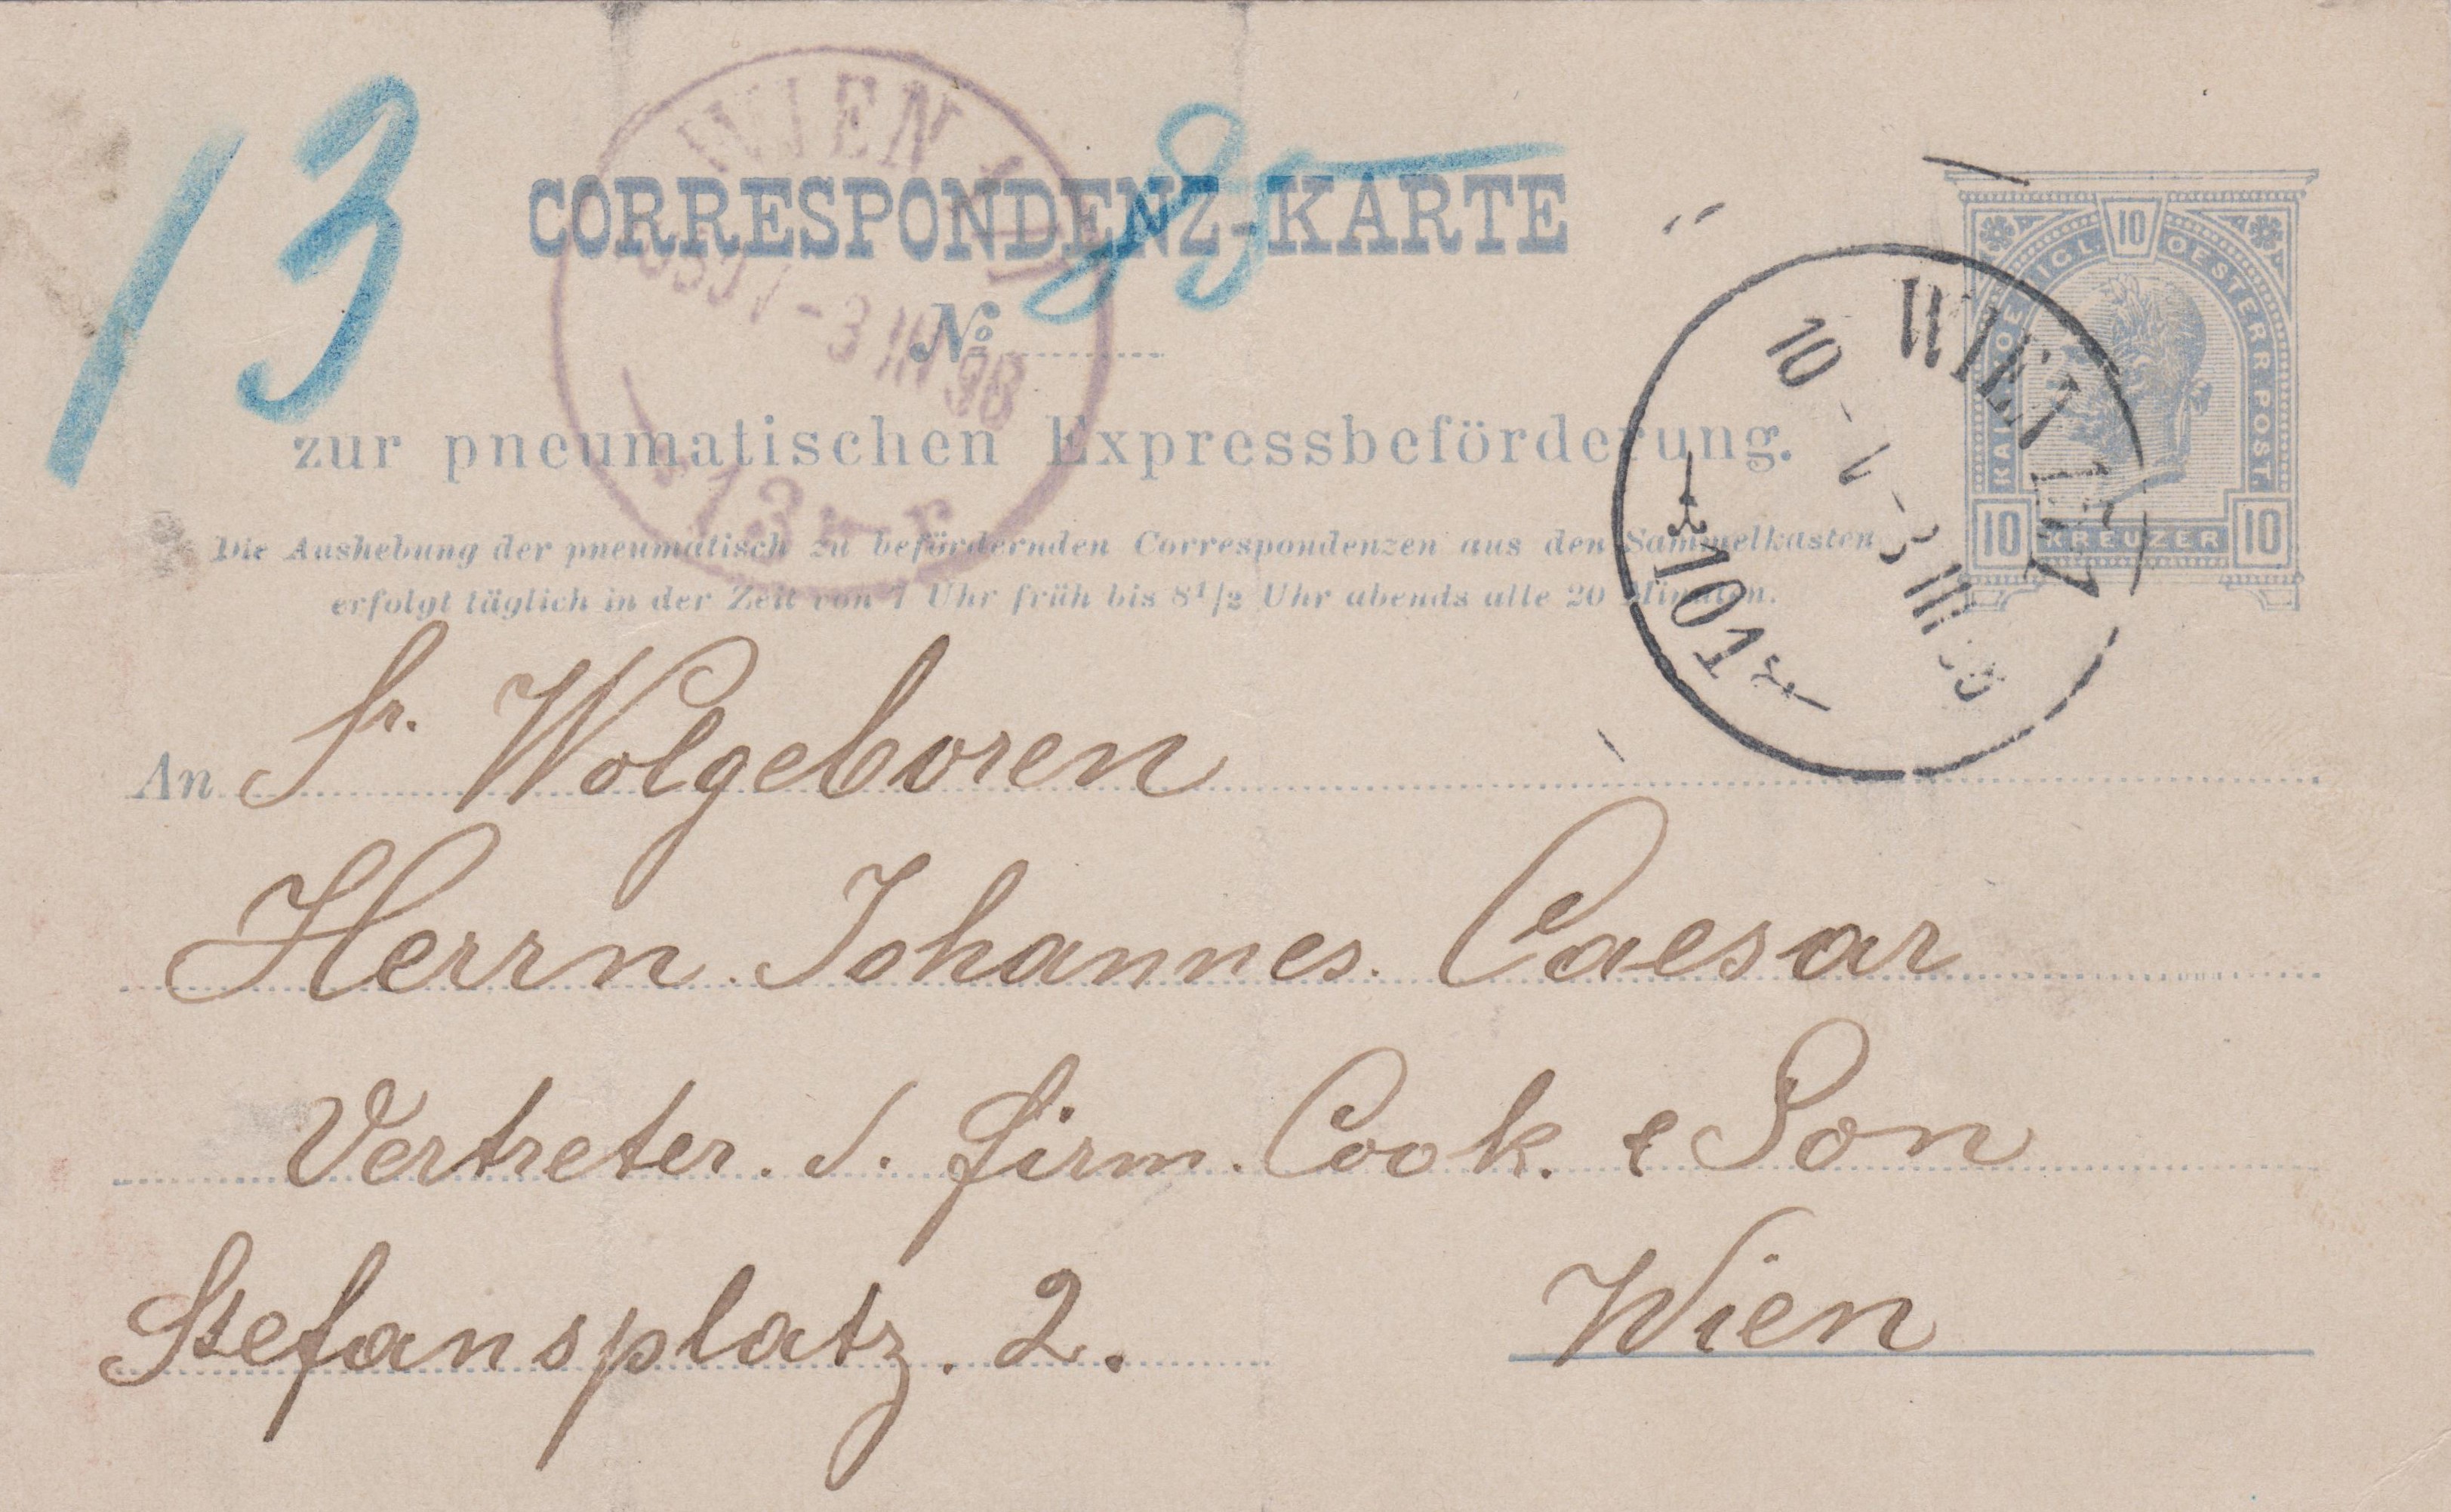 13
WIEN
CORRESPONDENZ-KARTE
85
No
-3 III 98
13
zur pneumatischen Expressbeförderung.
Die Aushebung der pneumatisch zu befördernden Correspondenzen aus den Sammelkasten
erfolgt täglich in der Zeit von 7 Uhr früh bis 8 1/2 Uhr abends alle 20 Minuten.
10
KAIS. KOENIGL. OESTERR. POST.
10 KREUZER 10
WIEN
10 - V - 3 III 98
101
An Sr. Wolgeboren
Herrn Johannes Caesar
Vertreter. d. Firm. Cook. & Son
Stefansplatz. 2. Wien